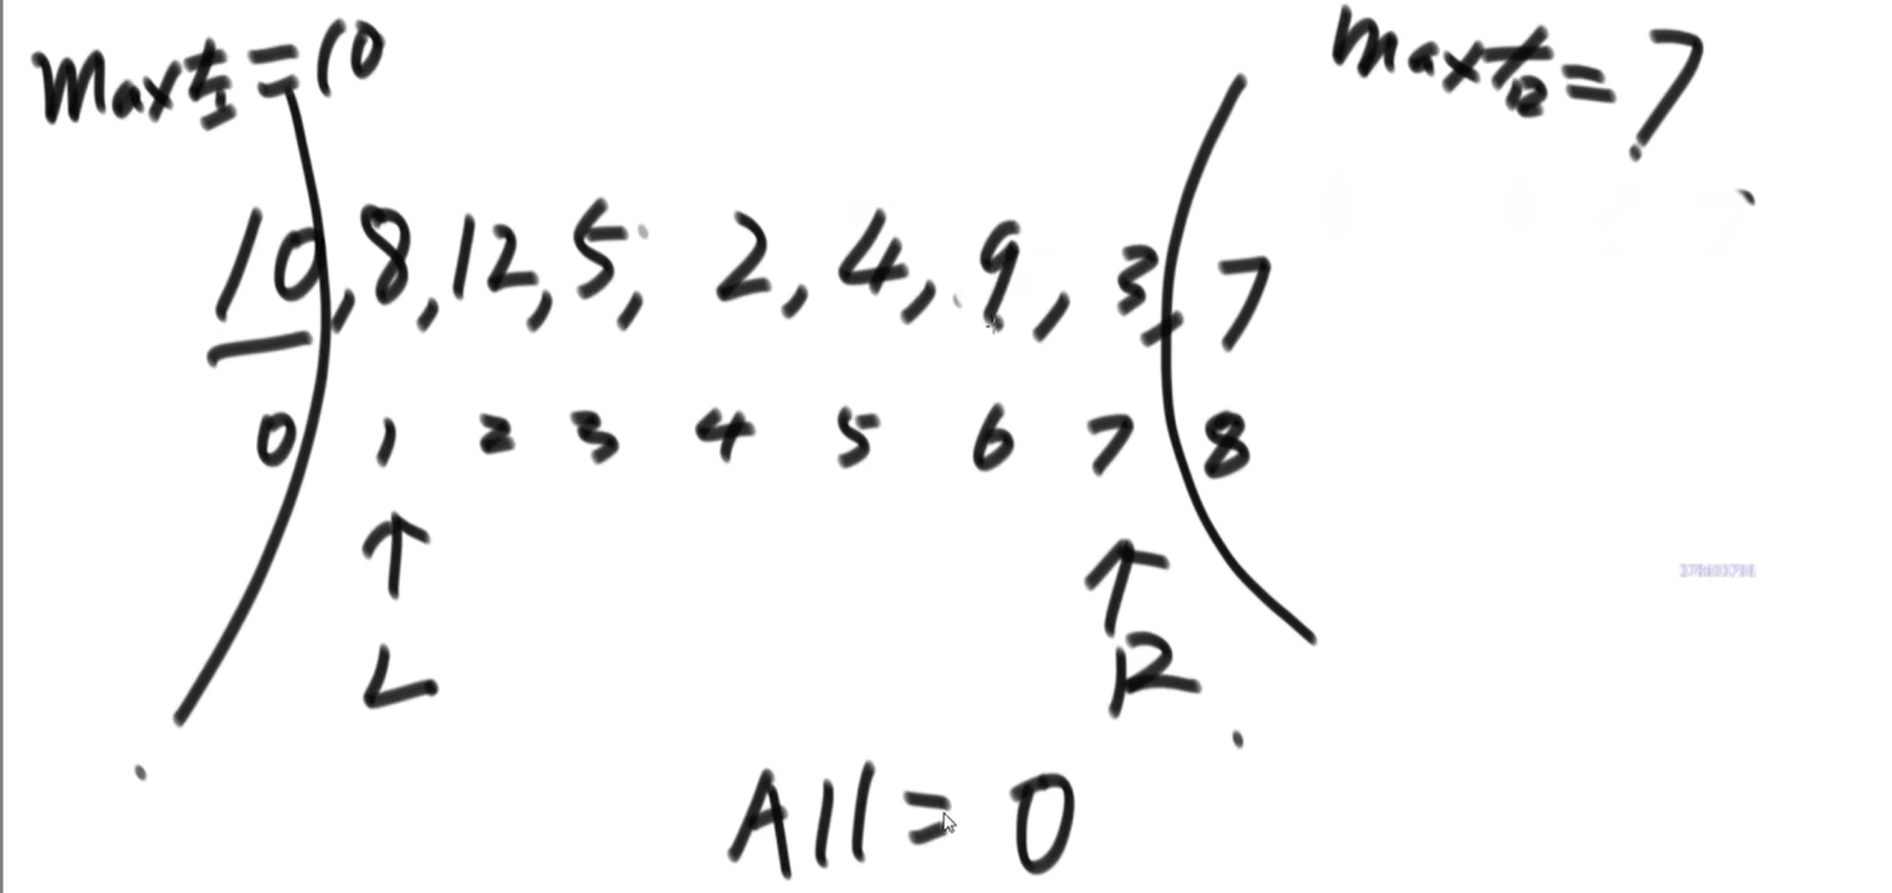 Max左=10
max右=7
10,8,12,5, 2,4,9,3,7
0 1 2 3 4 5 6 7 8
↑ ↑
L R
All=0